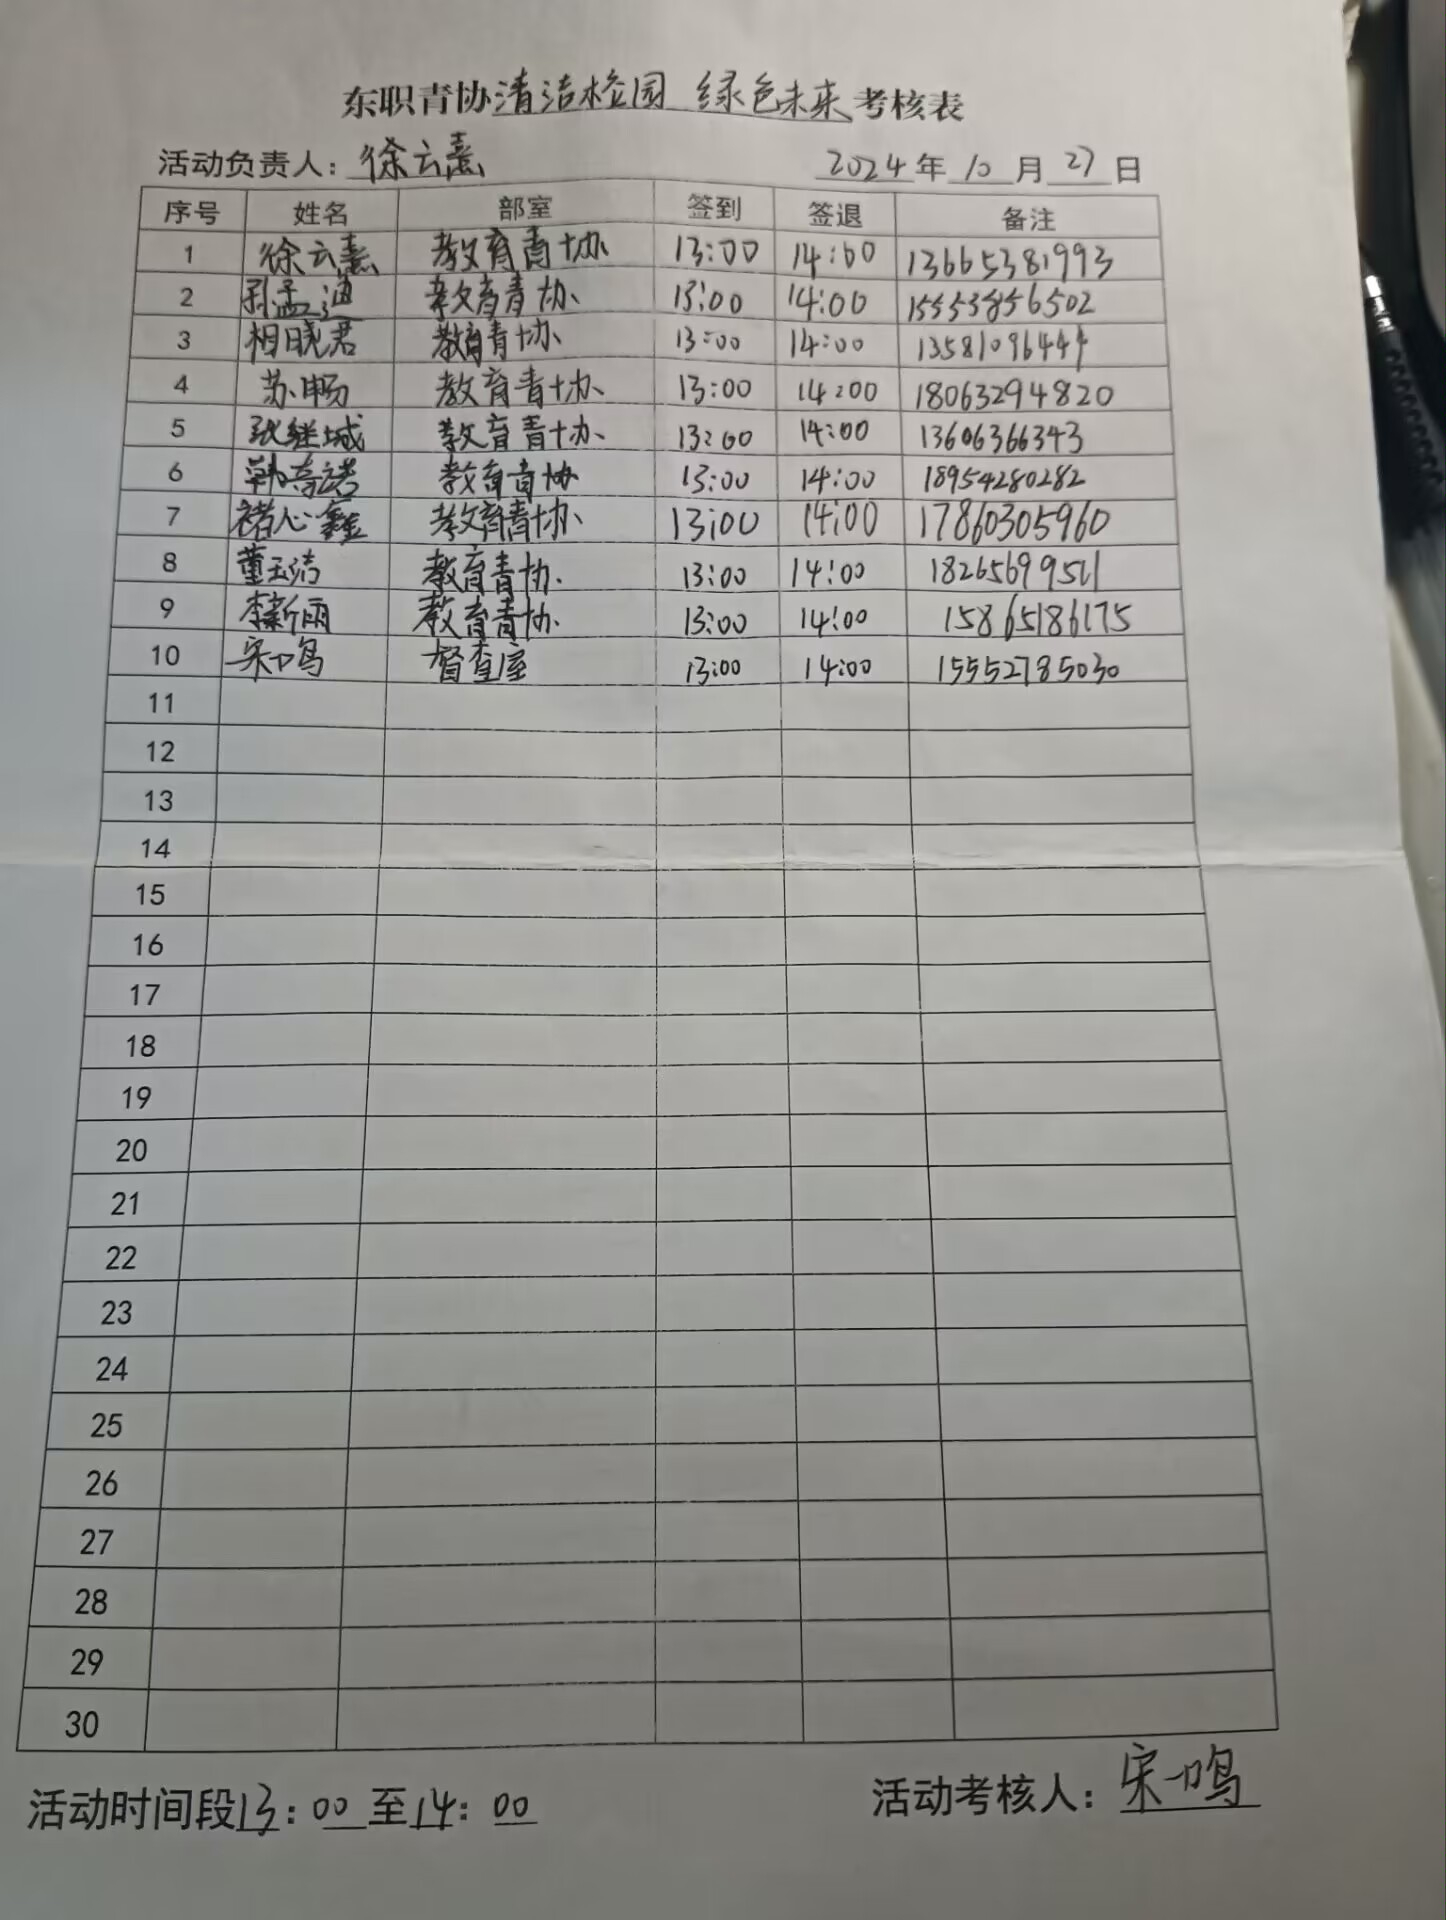 东职青协清洁校园 绿色未来考核表
活动负责人：徐云熹 2024年10月27日
序号 姓名 部室 签到 签退 备注
1 徐云熹 教育青协 13:00 14:00 13665381993
2 孙孟迪 教育青协 13:00 14:00 15553856502
3 相晓君 教育青协 13:00 14:00 13581096444
4 苏畅 教育青协 13:00 14:00 18063294820
5 张继城 教育青协 13:00 14:00 13606366343
6 韩奇诺 教育青协 13:00 14:00 18954280282
7 褚心鑫 教育青协 13:00 14:00 17860305960
8 董玉洁 教育青协 13:00 14:00 18265699511
9 李新雨 教育青协 13:00 14:00 15865186175
10 宋一鸣 督查室 13:00 14:00 15552785030
11
12
13
14
15
16
17
18
19
20
21
22
23
24
25
26
27
28
29
30
活动时间段13：00至14：00 活动考核人：宋一鸣